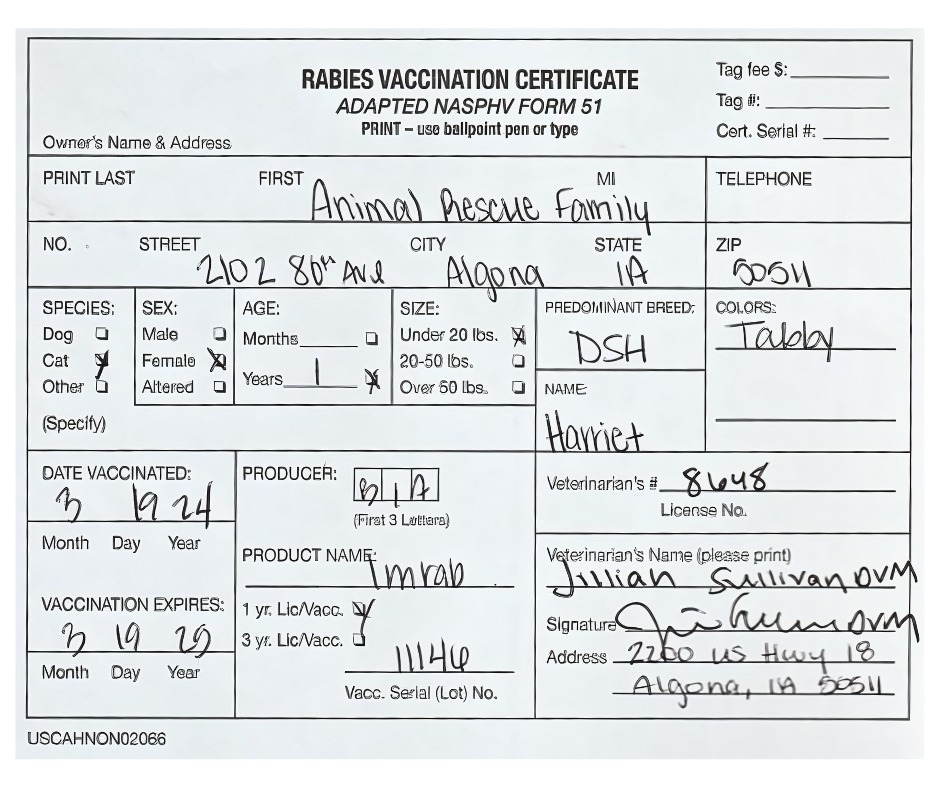 RABIES VACCINATION CERTIFICATE
ADAPTED NASPHV FORM 51
PRINT – use ballpoint pen or type
Tag fee $:
Tag #:
Cert. Serial #:
Owner's Name & Address
PRINT LAST FIRST MI TELEPHONE
Animal Rescue Family
NO. STREET CITY STATE ZIP
2102 80th Ave Algona IA 50511
SPECIES: SEX: AGE: SIZE: PREDOMINANT BREED: COLORS:
Dog Male Months Under 20 lbs. DSH Tabby
Cat Female 20-50 lbs.
Other Altered Years 1 Over 50 lbs. NAME:
(Specify) Harriet
DATE VACCINATED: PRODUCER: BIA Veterinarian's # 8648
3 19 24 (First 3 Letters) License No.
Month Day Year
PRODUCT NAME: Imrab Veterinarian's Name (please print)
Jillian Sullivan DVM
VACCINATION EXPIRES: 1 yr. Lic/Vacc. Signature DVM
3 19 25 3 yr. Lic/Vacc. Address 2200 US Hwy 18
Month Day Year 11146 Algona, IA 50511
Vacc. Serial (Lot) No.
USCAHNON02066